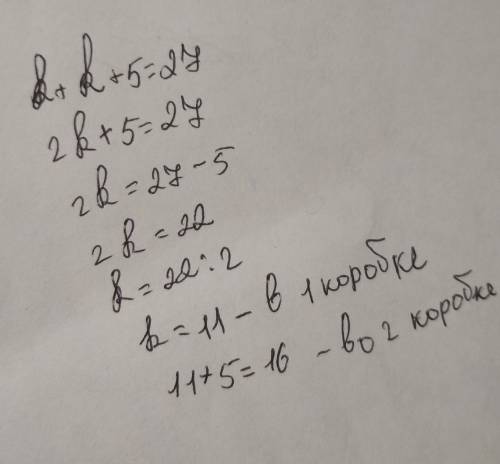 k + k + 5 = 27
2k + 5 = 27
2k = 27 - 5
2k = 22
k = 22 : 2
k = 11 - в 1 коробке
11 + 5 = 16 - во 2 коробке